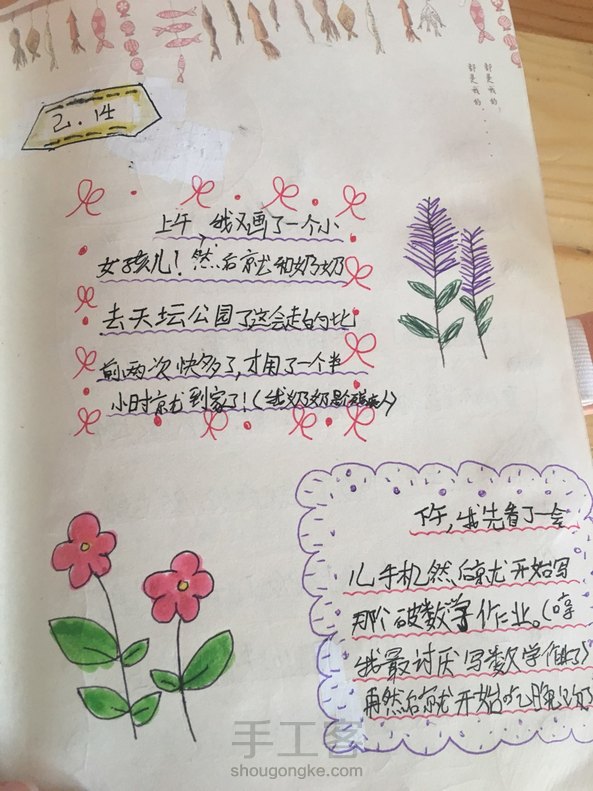 都是我的，
都是我的......
2.14
上午，我又画了一个小
女孩儿！然后就和奶奶
去天坛公园了这会走的比
前两次快多了，才用了一个半
小时就到家了！（我奶奶是个残疾人）
下午，我先看了一会
儿手机然后就开始写
那个破数学作业。（哼
我最讨厌写数学作业了）
再然后就开始吃晚饭了
手工客
shougongke.com